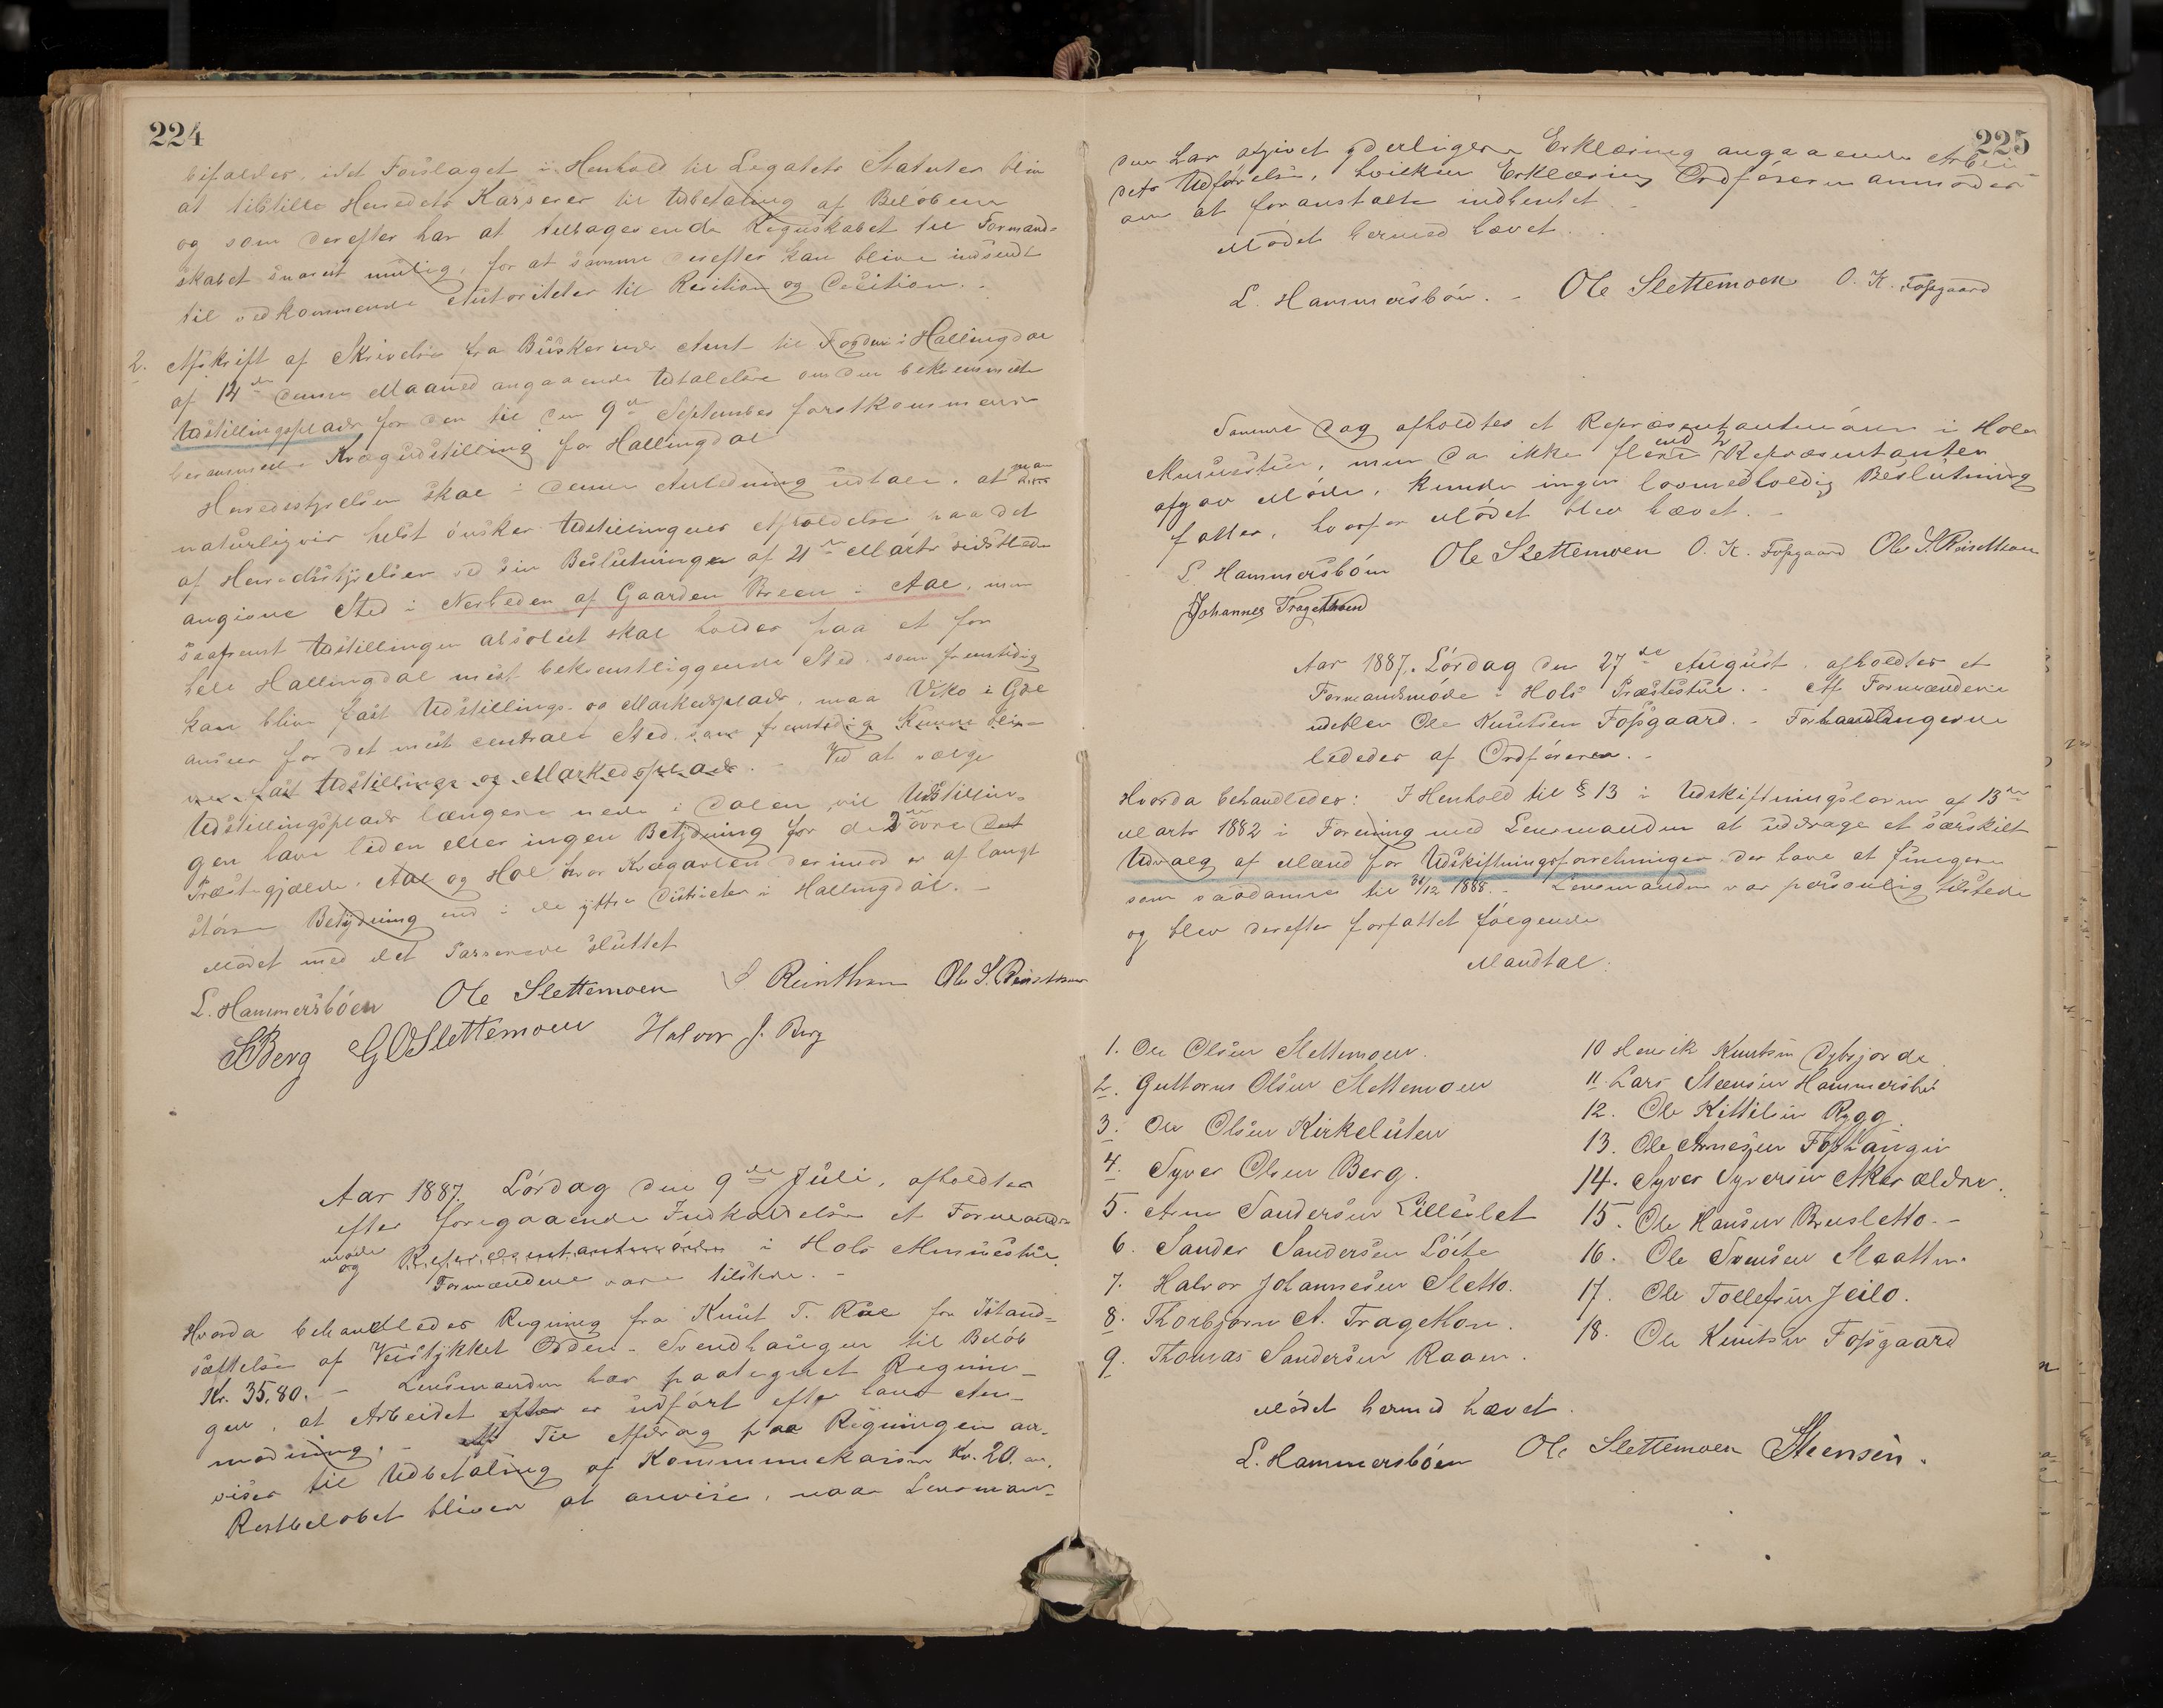 224
bifaldes, idet Forslaget i Henhold til Legatets Statuter blir
at tilstille Herredets Kasserer til Udbetaling af Beløbene
og som derefter har at tilbagesende Regnskabet til Formand-
skabet snarest mulig, for at samme derefter kan blive indsendt
til vedkommende Autoriteter til Revition og Decition. -
2. Afskrift af Skrivelse fra Buskeruds Amt til Fogden i Hallingdal
af 14de denne Maaned angaaende Udtalelse om den bekvemmeste
Udstillingsplads for den til den 9de September førstkommende
berammede Kvægudstilling for Hallingdal
Herredsstyrelsen skal i denne Anledning udtale, at man
naturligvis helst ønsker Udstillingens Afholdelse paa det
af Herredsstyrelsen ved sin Beslutning af 21de Marts sidstleden
angivne Sted i Nerheden af Gaarden Breen i Aal, men
saafremt Udstillingen absolut skal holdes paa et for
hele Hallingdal mest bekvemtliggende Sted, som fremtidig
kan blive fast Udstillings- og Markedsplads, maa Viko i Gol
ansees for det mest centrale Sted som fremtidig kunne blive
fast Udstillings og Markedsplads. - Ved at vælge
Udstillingsplads længere nede i Dalen vil Udstillin-
gen have liden eller ingen Betydning for de 2 øvre
Præstegjælde, Aal og Hol hvor Kvægavlen derimod er af langt
større Betydning end i de yttre Distrikter i Hallingdal. -
Mødet med det Passerede sluttet
L. Hammersbøen Ole Slettemoen S. Reinthon Ole S. Reinthon
SBerg GOSlettemoen Halvor J. Berg
Aar 1887. Lørdag den 9de Juli, afholdtes
efter foregaaende Indkaldelse et Formands-
møde og Repræsentantmøde i Hols Skuestue.
Formændene vare tilstede. -
Hvorda behandledes Regning fra Knut T. Raae for Istand-
sættelse af Veistykket Odden - Svendhaugen til Beløb
Kr. 35,80. - Lensmanden har paategnet Regnin-
gen, at Arbeidet efter er udført efter hans An-
modning. - Til Afdrag paa Regningen an-
vises til Udbetaling af Kommunekassen Kr. 20. -
Restbeløbet bliver at anvise, naar Lensman-
225
den har afgivet yderligere Erklæring angaaende Arbei-
dets Udførelse, hvilken Erklæring Ordføreren anmodes
om at foranstalte indhentet.
Mødet hermed hævet.
L. Hammersbøn. - Ole Slettemoen O. K. Fosgaard
Samme Dag afholdtes et Repræsentantmøde i Hols
Skuestue, men da ikke flere end 2 Repræsentanter
afgav Møde, kunde ingen lovmedholdig Beslutning
fattes, hvorfor Mødet blev hævet. -
L. Hammersbøn Ole Slettemoen O. K. Fosgaard Ole S. Reinthon
Johannes Tragethon
Aar 1887. Lørdag den 27de August, afholdtes et
Formandsmøde i Hols Præstestue. - Af Formændene
udeblev Ole Knutsen Fosgaard. - Forhandlingerne
lededes af Ordføreren. -
Hvorda behandledes: I Henhold til § 13 i Udskiftningsloven af 13de
Marts 1882 i Forening med Lensmanden at uddrage et særskilt
Udvalg af Mænd for Udskiftningsforretninger der have at fungere
som saadanne til 31/12 1888. - Lensmanden var personlig tilstede
og blev derefter forfattet følgende
Mandtal:
1. Ole Olsen Slettemoen.
2. Guttorm Olsen Slettemoen
3. Ole Olsen Kirkeluten
4. Syver Olsen Berg.
5. Arne Sandersen Lilleslet
6. Sander Sandersen Løite
7. Halvor Johannesen Sletto.
8. Thorbjørn A. Tragethon.
9. Thomas Sandersen Raaen.
10 Henrik Knutsen Dybsjorde
11. Lars Steensen Hammersbø
12. Ole Kittilsen Rygg
13. Ole Arnesen Foshaugen
14. Syver Syversen Aker ældre.
15. Ole Hansen Brusletto. -
16. Ole Svensen Slaatten.
17. Ole Tollefsen Jeilo.
18. Ole Knutsen Fosgaard
Mødet hermed hævet.
L. Hammersbøen Ole Slettemoen Steensen.